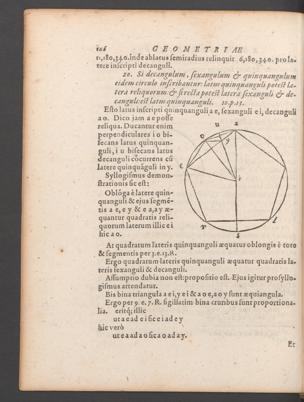 106 GEOMETRIAE
0,180,340. inde ablatus semiradius relinquit 6,180,340. pro latere inscripti decanguli.
20. Si decangulum, sexangulum & quinquangulum
eidem circulo inscribantur: latus quinquanguli potest latera
reliquorum & si recta potest latera sexanguli & decanguli: est latus quinquanguli. 10.p.13.
Esto latus inscripti quinquanguli a e, sexanguli e i, decanguli
a o. Dico jam a e posse
reliqua. Ducantur enim
perpendiculares i o bisecans
latus quinquanguli,
i u bisecans latus
decanguli concurrens cum
latere quinquanguli in y.
Syllogismus demonstrationis
sic est:
Oblonga è latere quinquanguli
& ejus segmentis
a e, e y & e a, a y aequantur
quadratis reliquorum
laterum illic e i
hic a o.
At quadratum lateris quinquanguli aequatur oblongis è toto
& segmentis per 3.e.13.
Ergo quadratum lateris quinquanguli aequatur quadratis lateris
sexanguli & decanguli.
Assumptio dubia non est: propositio est. Ejus igitur prosyllogismus
attendatur.
Bis bina triangula a e i, y e i & a o e, a o y sunt aequiangula.
Ergo per 9. e. 7. sigillatim bina cruribus sunt proportionalia.
eritque; illic
ut a e ad e i sic e i ad e y
hic verò
ut e a ad a o sic a o ad a y.
Et
a
u
o
y
e
i
r
s
l